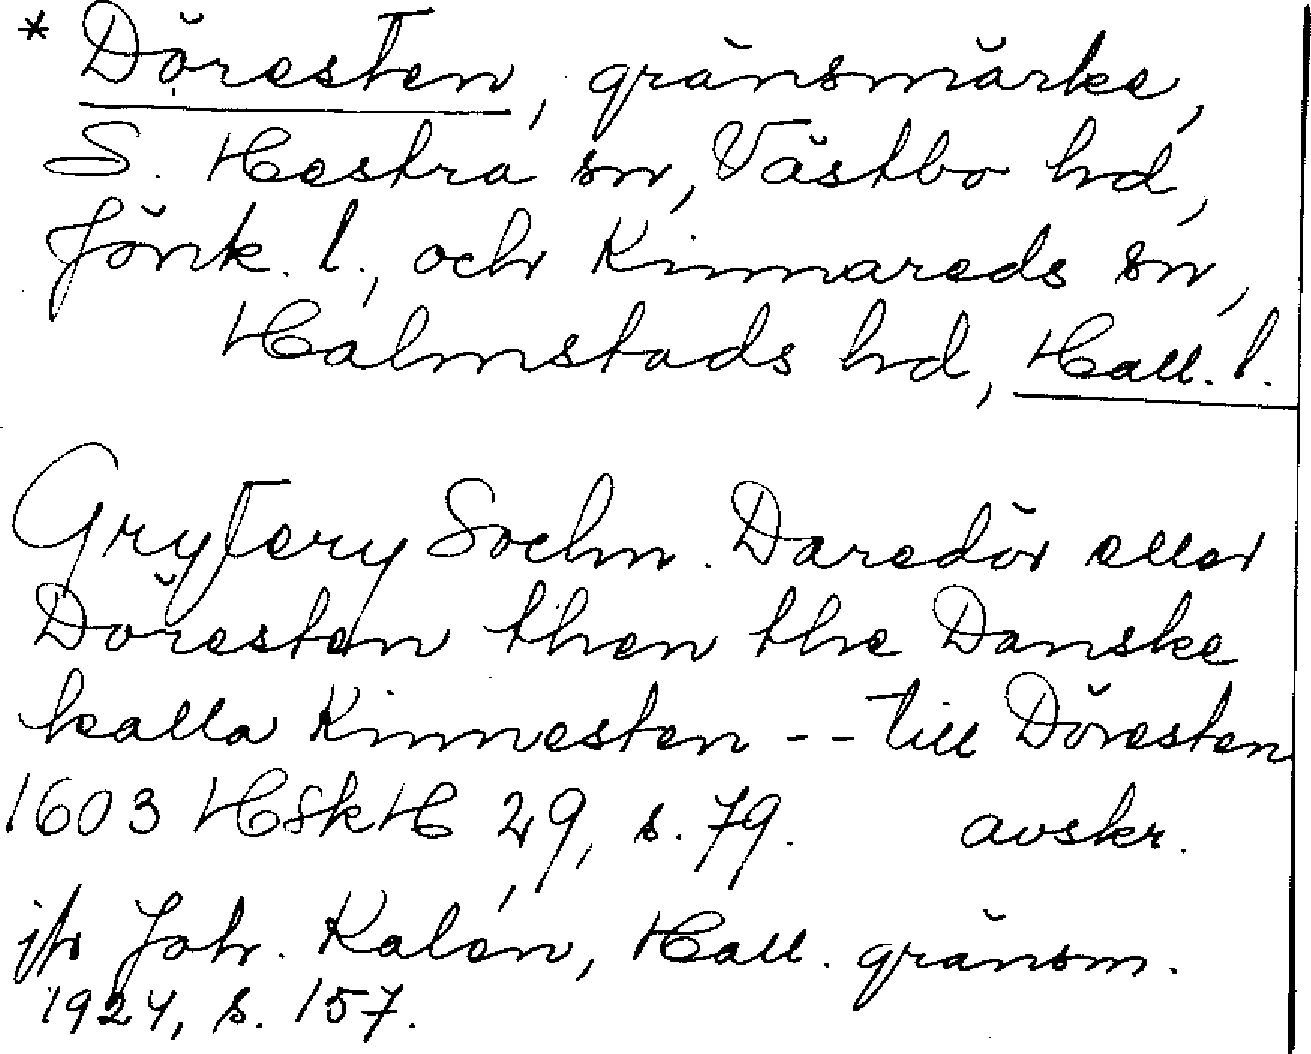 * Döresten, gränsmärke,
S. Hestra sn, Västbo hd,
Jönk. l., och Kinnareds sn,
Halmstads hd, Hall. l.
Grytery Sochn. Daredör eller
Döresten then the Danske
kalla Kinnesten -- till Döresten
1603 HSkH 29, s. 79. avskr.
jfr Joh. Kalén, Hall. gränsm.
1924, s. 157.